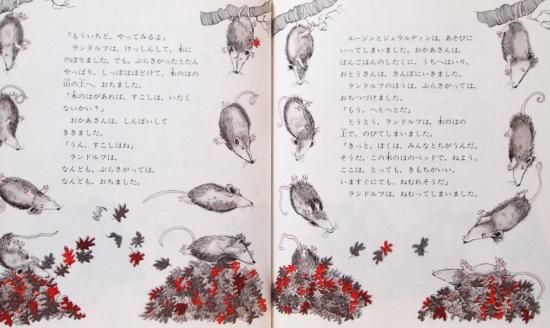 「もういちど、やってみるよ」
ランドルフは、けっしんして、木に
のぼりました。でも、ぶらさがったとたん
やっぱり、しっぽはほどけて、木のはの
山の上へ、おちました。
「木のはがあれば、すこしは、いたく
ないかい？」
おかあさんは、しんぱいして
ききました。
「うん、すこしはね」
ランドルフは、
なんども、ぶらさがっては、
なんども、おちました。
ユージンとジェラルディンは、あそびに
いってしまいました。おかあさんは、
ばんごはんのしたくに、うちへはいり、
おとうさんは、さんぽにいきました。
ランドルフのほうは、ぶらさがっては、
おちつづけました。
「もう、へとへとだ」
とうとう、ランドルフは、木のはの
上で、のびてしまいました。
「きっと、ぼくは、みんなとちがうんだ。
そうだ、この木のはのベッドで、ねよう。
ここは、とっても、きもちがいい。
いますぐにでも、ねむれそうだ」
ランドルフは、ねむってしまいました。